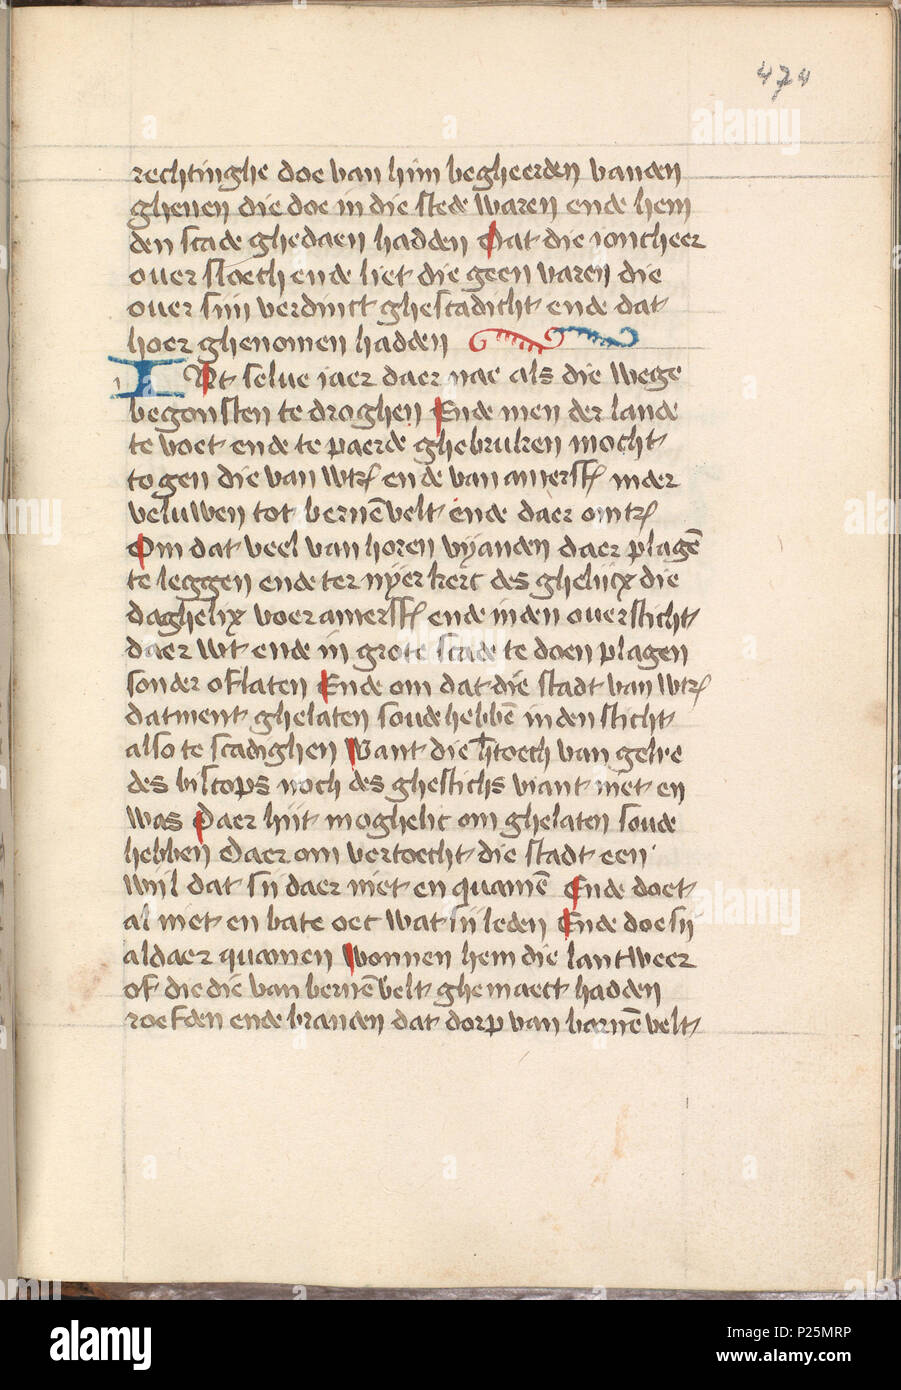 474
rechtinghe doe van him begheerden vanden
ghenen die doe in die stede waren ende hem
den scade ghedaen hadden Dat die ioncheer
ouer sloech ende liet die geen varen die
ouer sijn verdinct ghescadicht ende dat
hoer ghenomen hadden
INt selue iaer daer nae als die wege
begonsten te droghen Ende men der lande
te voet ende te paerde ghebruken mocht
togen die van wtr ende van amersf inder
veluwen tot bernēvelt ende daer omtr
Om dat veel van horen vyanden daer plagē
te leggen ende ter nyer kerc des ghelijcx die
daghelix voer amersf ende inden ouersticht
daer wt ende in grote scade te doen plagen
sonder oflaten Ende om dat die stadt van wtr
datment ghelaten soude hebbē inden sticht
also te scadighen Want die htoech van gelre
des biscops noch des ghestichs viant niet en
was Daer hijt moghelic om ghelaten soude
hebben Daer om vertoecht die stadt een
wijl dat sij daer niet en quamē Ende doet
al niet en bate oec wat sij leden Ende doe sij
aldaer quamen Wonnen hem die lantweer
of die die van bernēvelt ghemaect hadden
roefden ende branden dat dorp van barnēvelt
alamy
alamy
Image ID: P25MRP
www.alamy.com